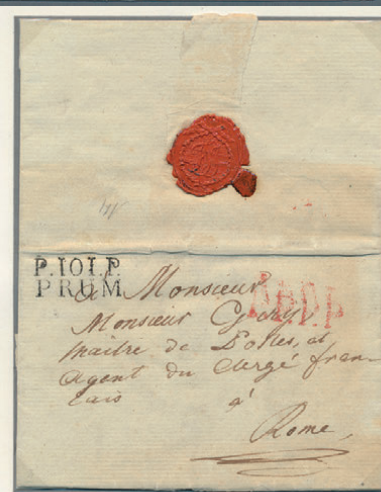 P.101.P.
PRUM
A Monsieur
Monsieur
maitre de Postes, et
agent du clergé fran-
cais
à
Rome,